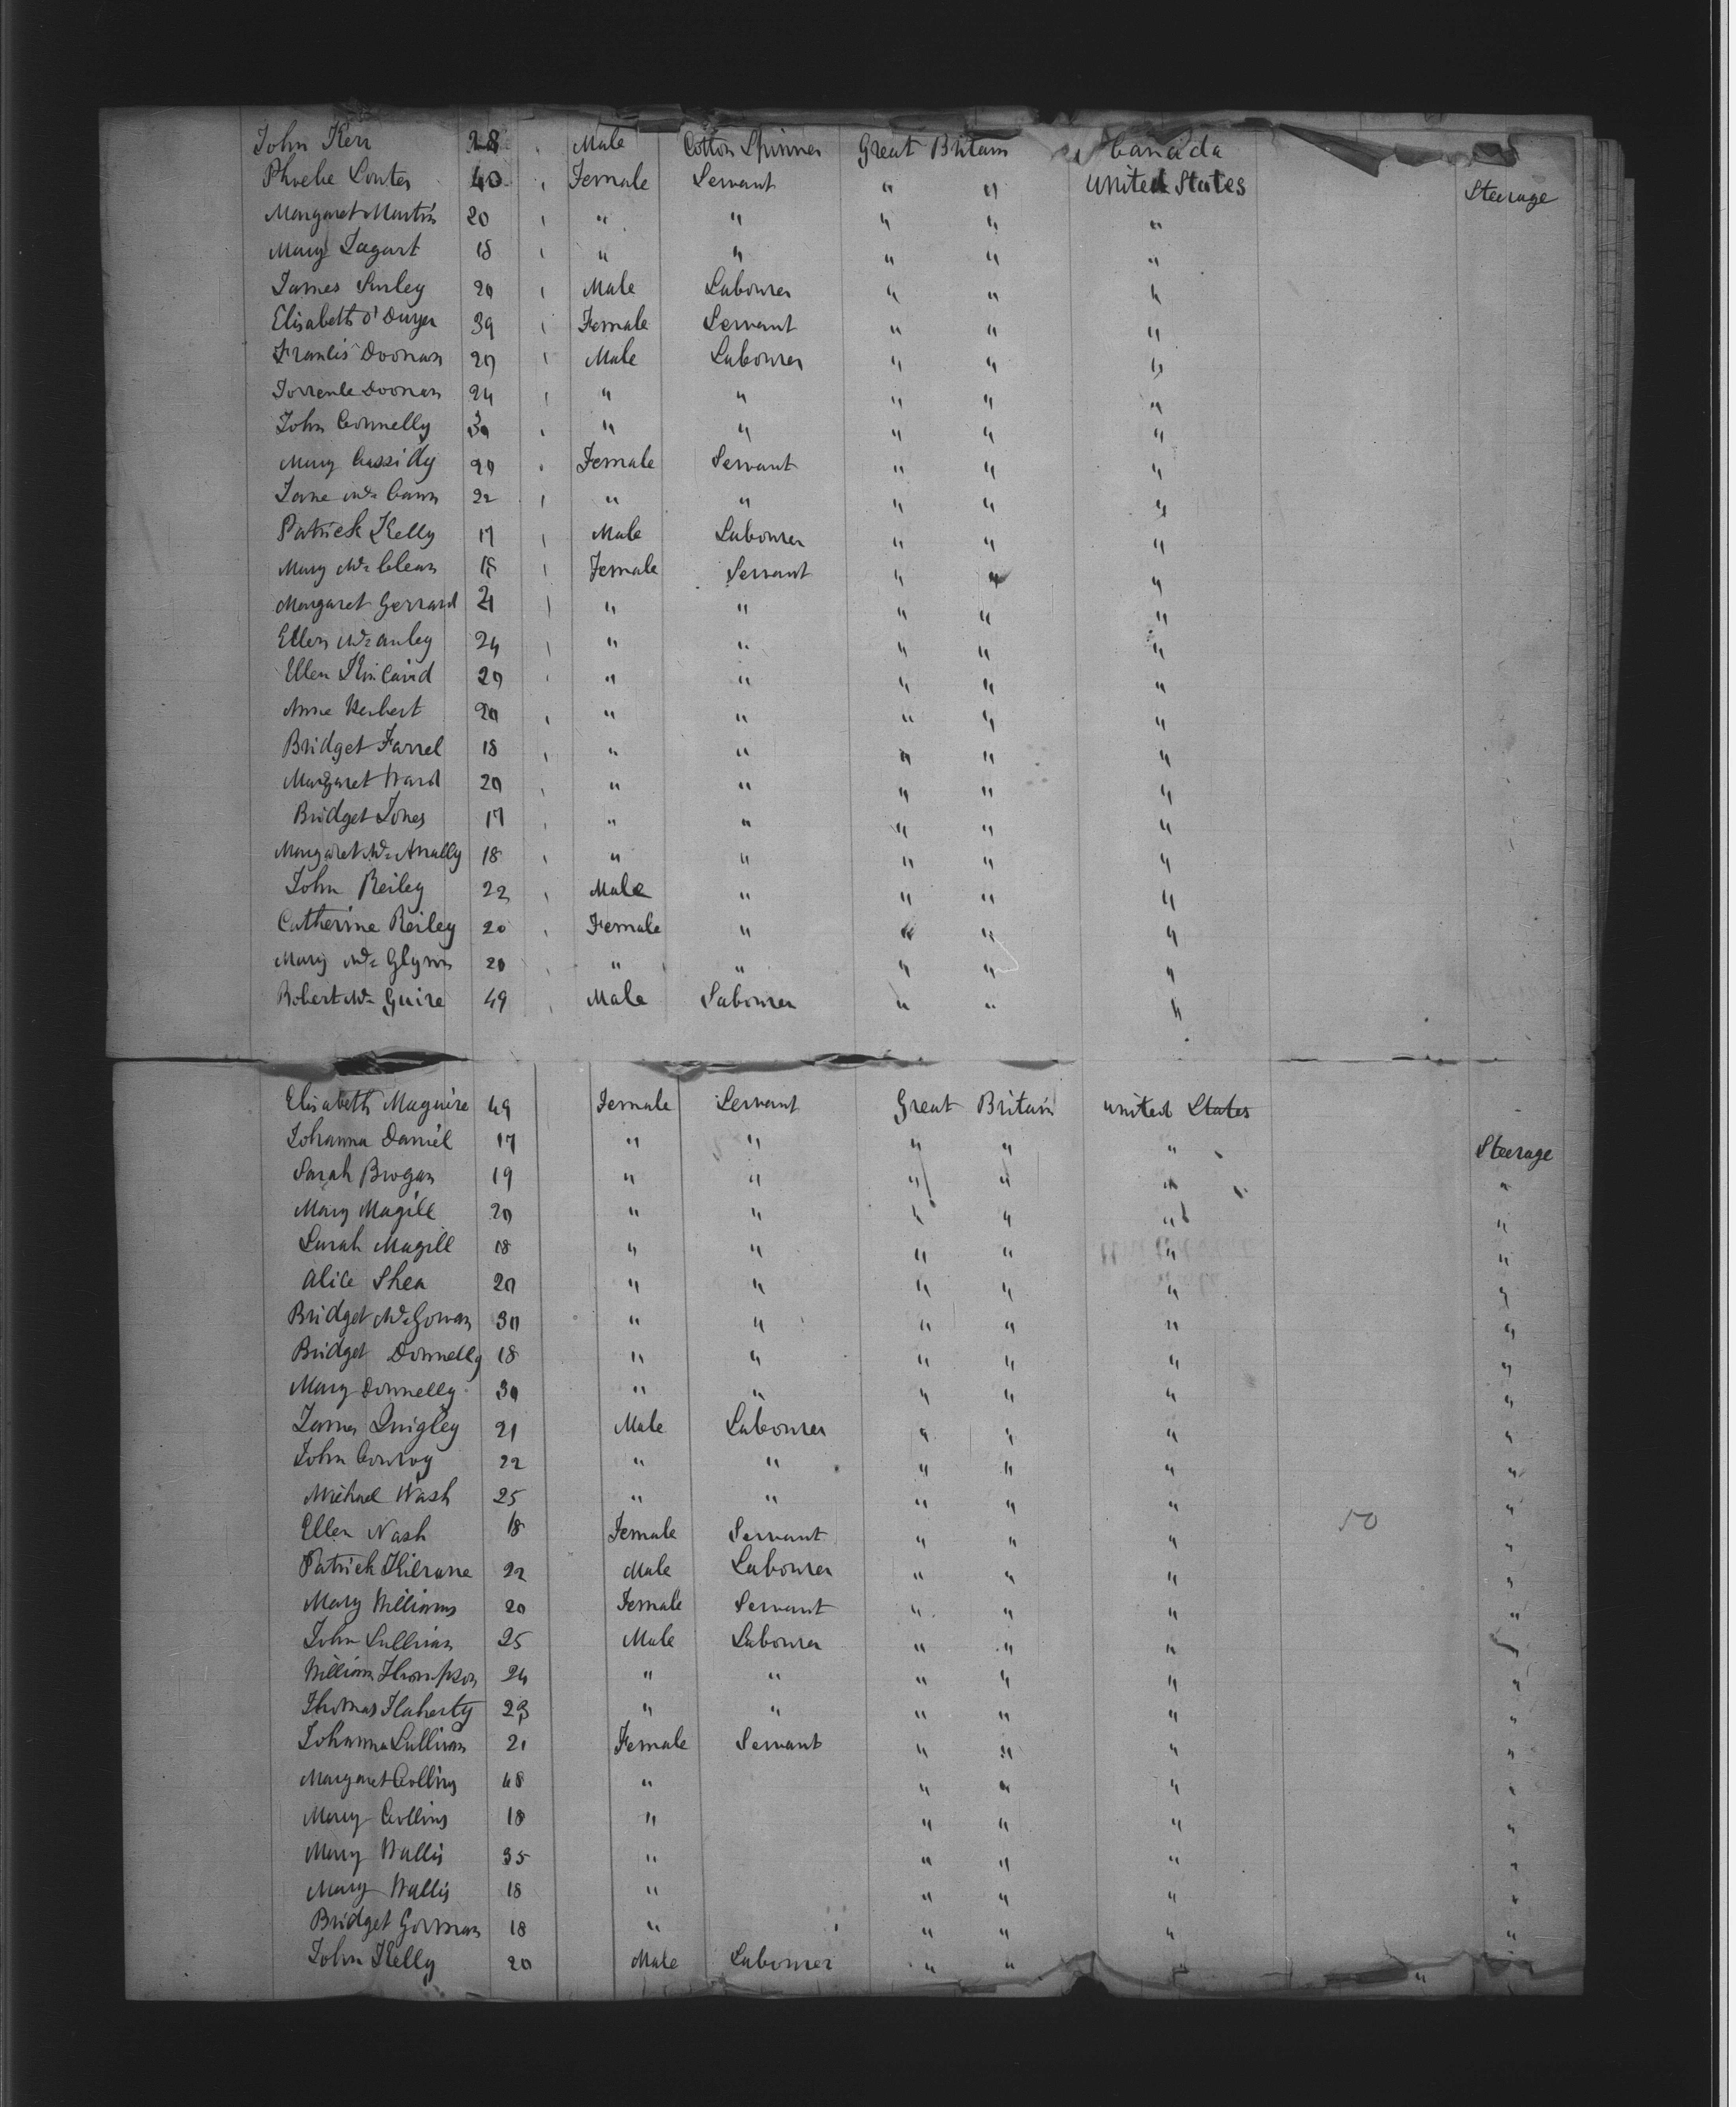 John Kerr 28 Male Cotton Spinner Great Britain Canada
Phoebe 40 Female Servant " " United States Steerage
Margaret Martin 20 " " " " "
Mary Tagart 18 " " " " "
James 20 Male Labourer " " "
Elisabeth O'Dwyer 39 Female Servant " " "
Francis Doonan 20 Male Labourer " " "
Torrence Doonan 24 " " " " "
John Connelly 30 " " " " "
Mary Cassidy 20 Female Servant " " "
Jane Mc Cann 22 " " " " "
Patrick Kelly 17 Male Labourer " " "
Mary Mc Clean 18 Female Servant " " "
Margaret Gerrard 21 " " " " "
Ellen Mc Auley 24 " " " " "
Ellen Kincaid 20 " " " " "
Anne Herbert 20 " " " " "
Bridget Farrel 18 " " " " "
Margaret Ward 20 " " " " "
Bridget Jones 17 " " " " "
Margaret Mc Anally 18 " " " " "
John Reiley 22 Male " " " "
Catherine Reiley 20 Female " " " "
Mary Mc Glynn 20 " " " " "
Robert Mc Guire 49 Male Labourer " " "
Elisabeth Maguire 49 Female Servant Great Britain United States
Johanna Daniel 17 " " " " " Steerage
Sarah Brogan 19 " " " " " "
Mary Magill 20 " " " " " "
Sarah Magill 18 " " " " " "
Alice Shea 20 " " " " " "
Bridget Mc Gowan 30 " " " " " "
Bridget Donnelly 18 " " " " " "
Mary Donnelly 30 " " " " " "
James Quigley 21 Male Labourer " " " "
John Conroy 22 " " " " " "
Michael Nash 25 " " " " " "
Ellen Nash 18 Female Servant " " " 50 "
Patrick Kilrane 22 Male Labourer " " " "
Mary Williams 20 Female Servant " " " "
John Sullivan 25 Male Labourer " " " "
William Thompson 24 " " " " " "
Thomas Flaherty 23 " " " " " "
Johanna Sullivan 21 Female Servant " " " "
Margaret Collins 48 " " " " "
Mary Collins 18 " " " " "
Mary Wallis 35 " " " " "
Mary Wallis 18 " " " " "
Bridget Gorman 18 " " " " "
John Kelly 20 Male Labourer " " " "